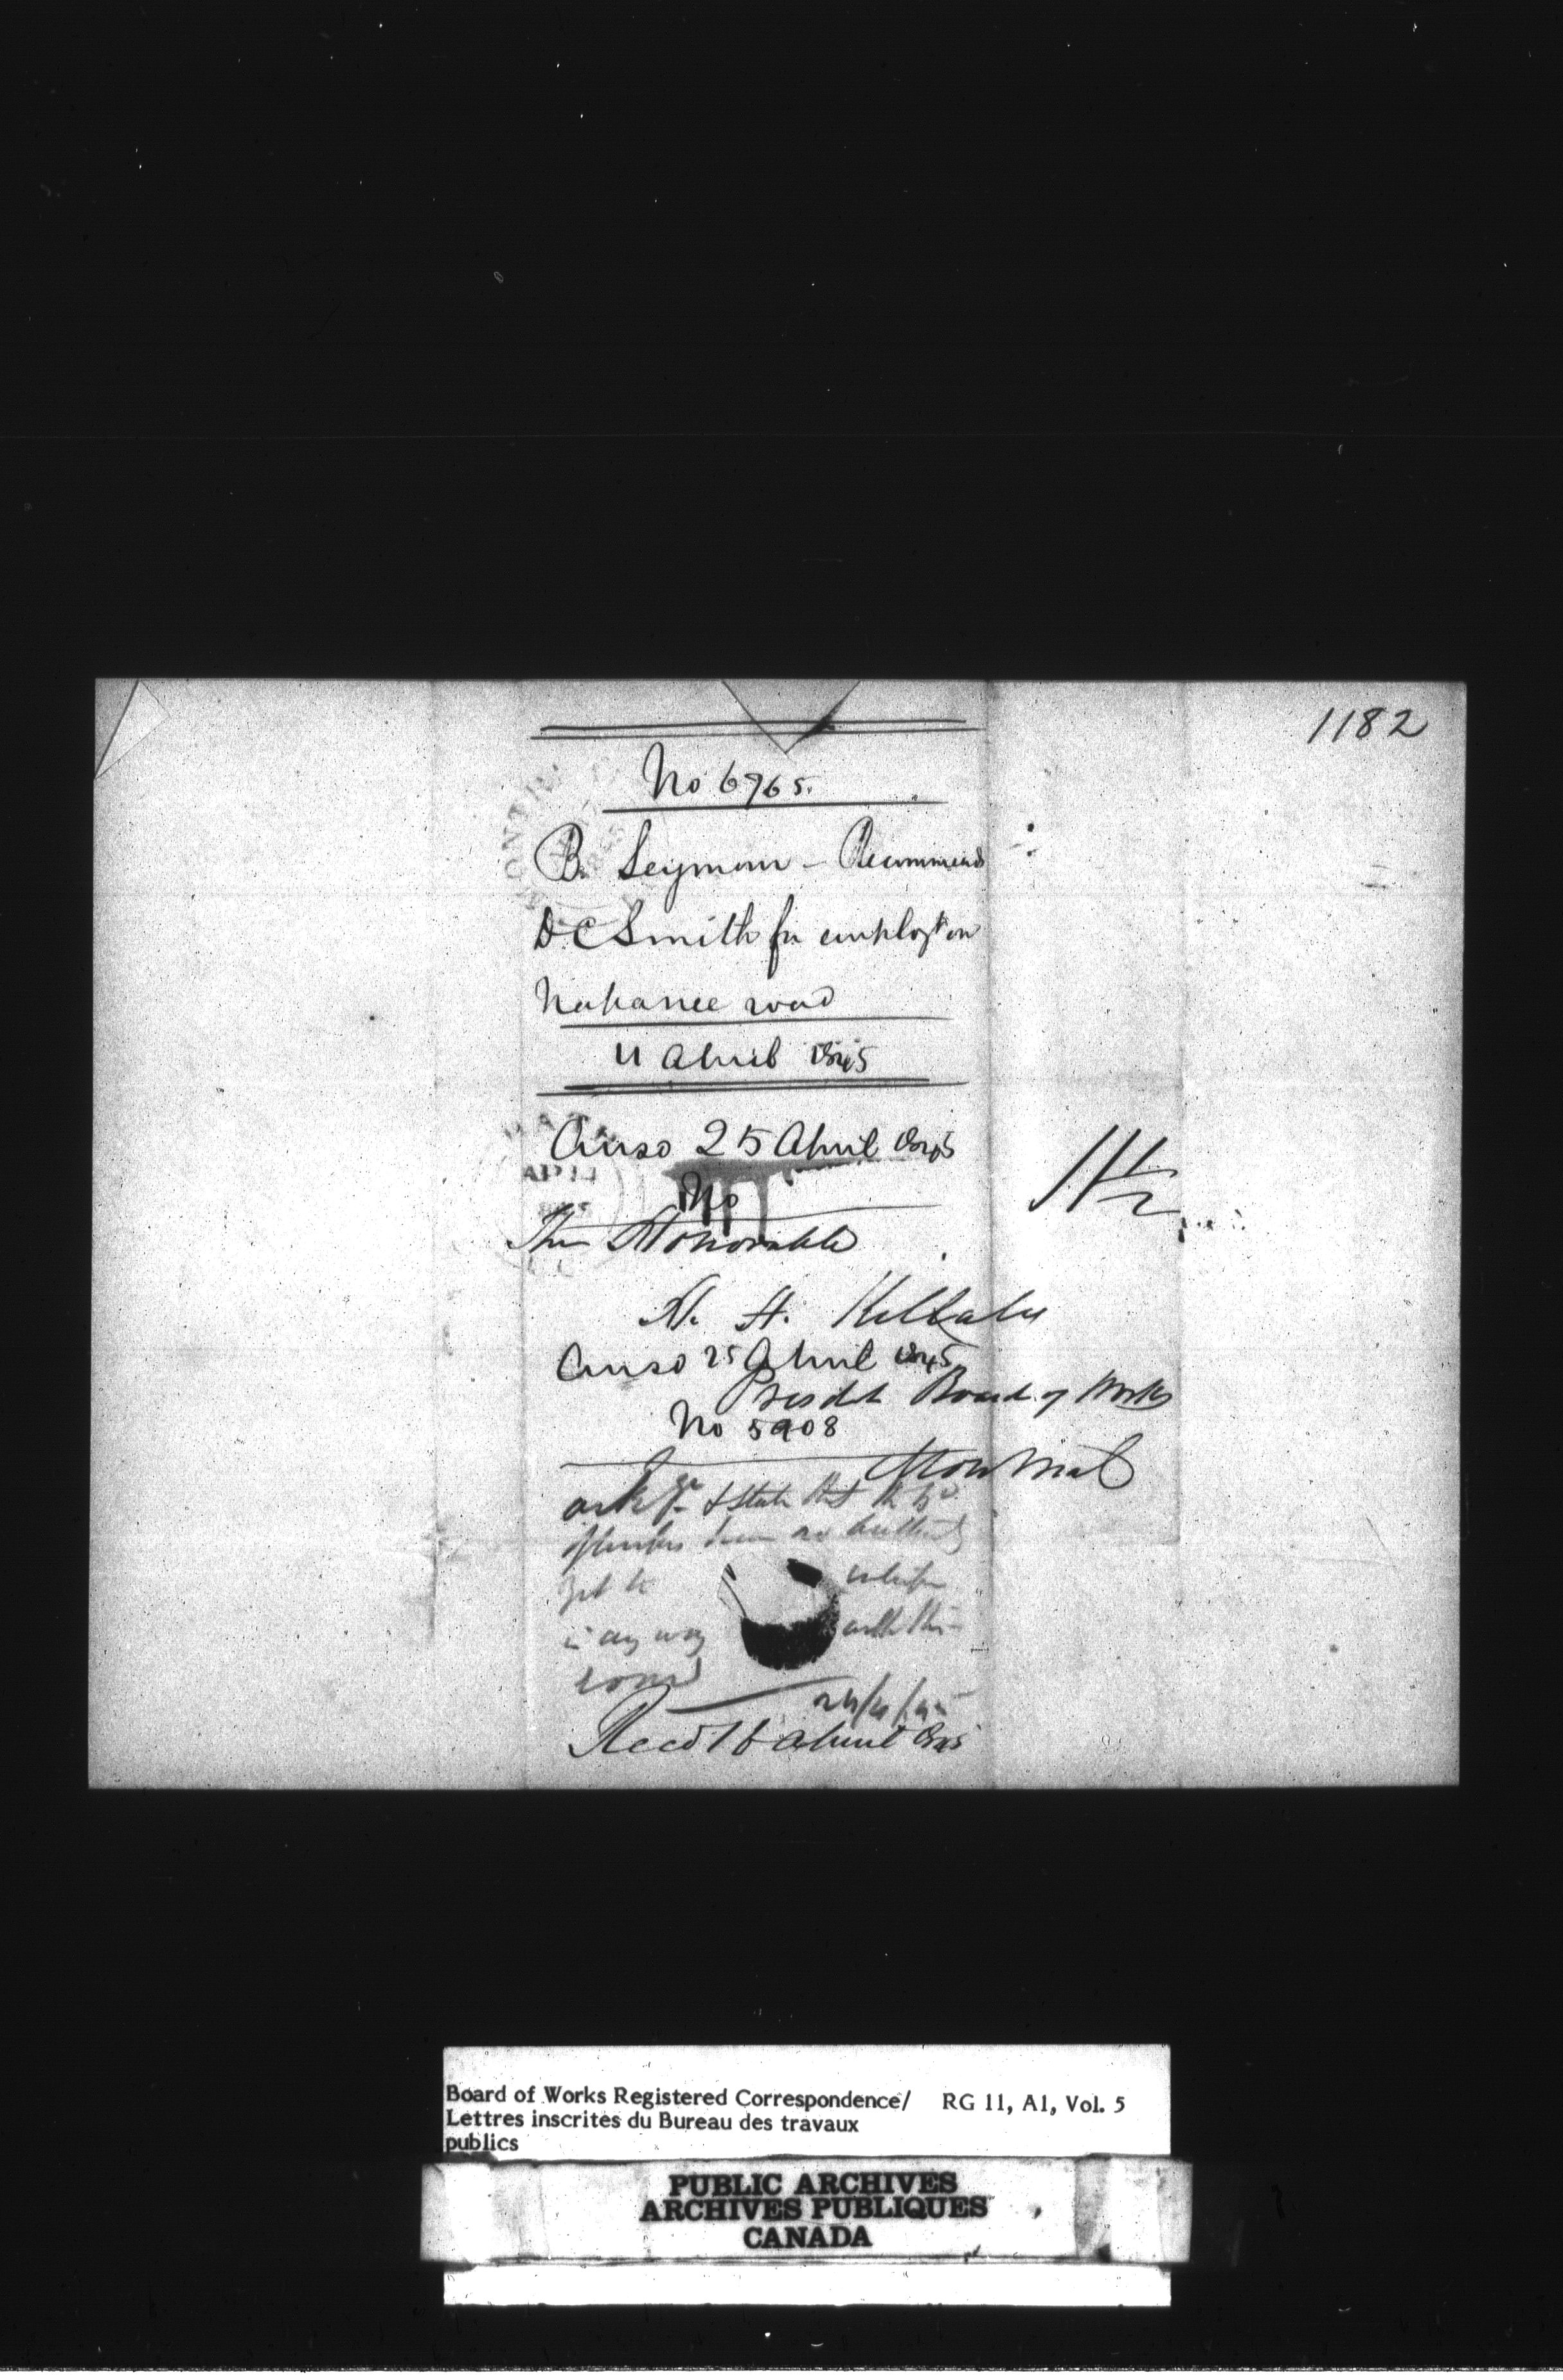 1182
No 6765.
B. Seymour - Recommends
D C Smith for employt on
Napanee road
11 April 1845
Answd 25 April 1845
No
The Honorable
H. H. Killaly
Answd 25 April 1845
Presdt Board of Works
No 5908
Montreal
1/1½
ack gr & state that the Bd
has no authority
yet to
in any way with this
road
24/4/45
Recd 16 April 1845
Board of Works Registered Correspondence/ RG 11, A1, Vol. 5
Lettres inscrites du Bureau des travaux
publics
PUBLIC ARCHIVES
ARCHIVES PUBLIQUES
CANADA